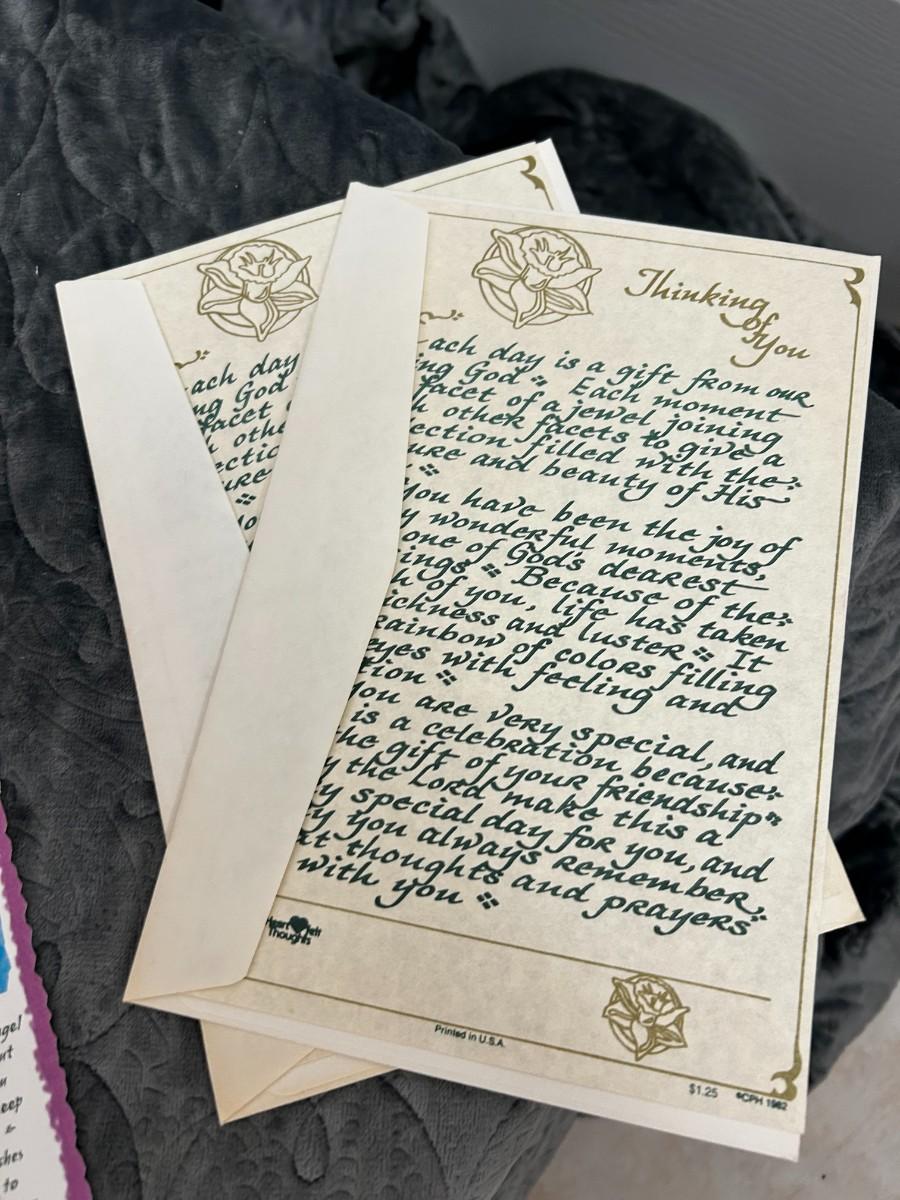 Thinking
of
You
ach day is a gift from our
ing God Each moment
facet of a jewel joining
h other facets to give a
ection filled with the
ure and beauty of His
You have been the joy of
y wonderful moments,
one of God's dearest
ings Because of the
h of you, life has taken
ichness and luster It
rainbow of colors filling
eyes with feeling and
tion
You are very special, and
is a celebration because
the gift of your friendship
y the Lord make this a
ly special day for you, and
y you always remember,
at thoughts and prayers
with you
Heart felt
Thoughts
Printed in U.S.A.
$1.25 ©CPH 1982
ach day
ng God
facet
h othe
ectic
ure
ngel
ut
u
eep
&
shes
to